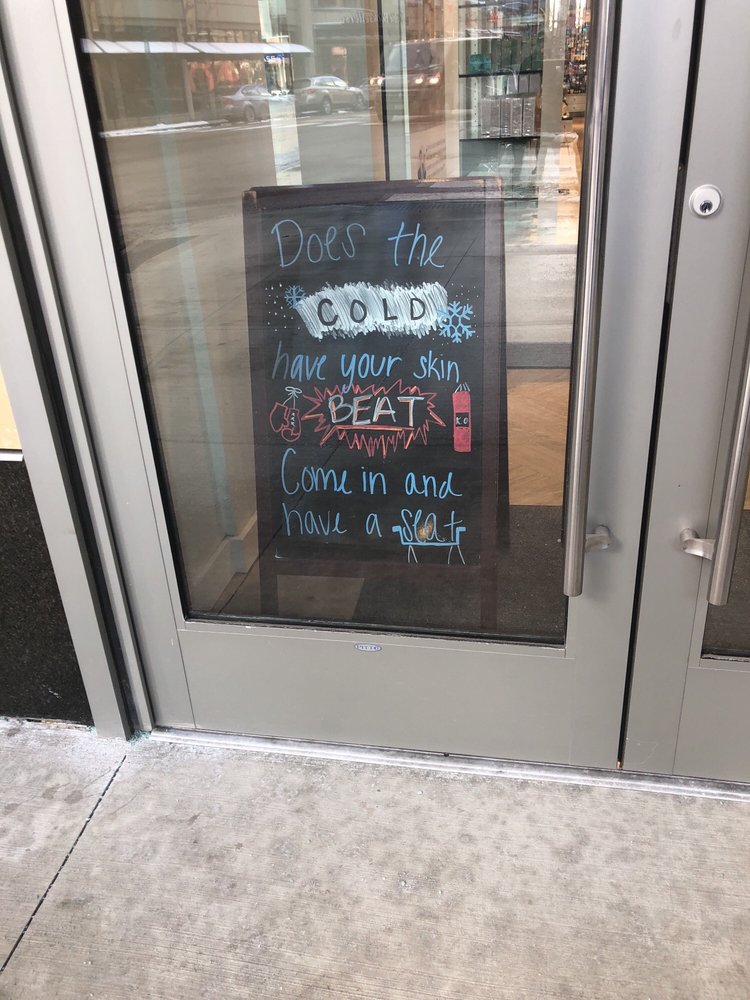 Does the
COLD
have your skin
BEAT
KO
Come in and
have a seat